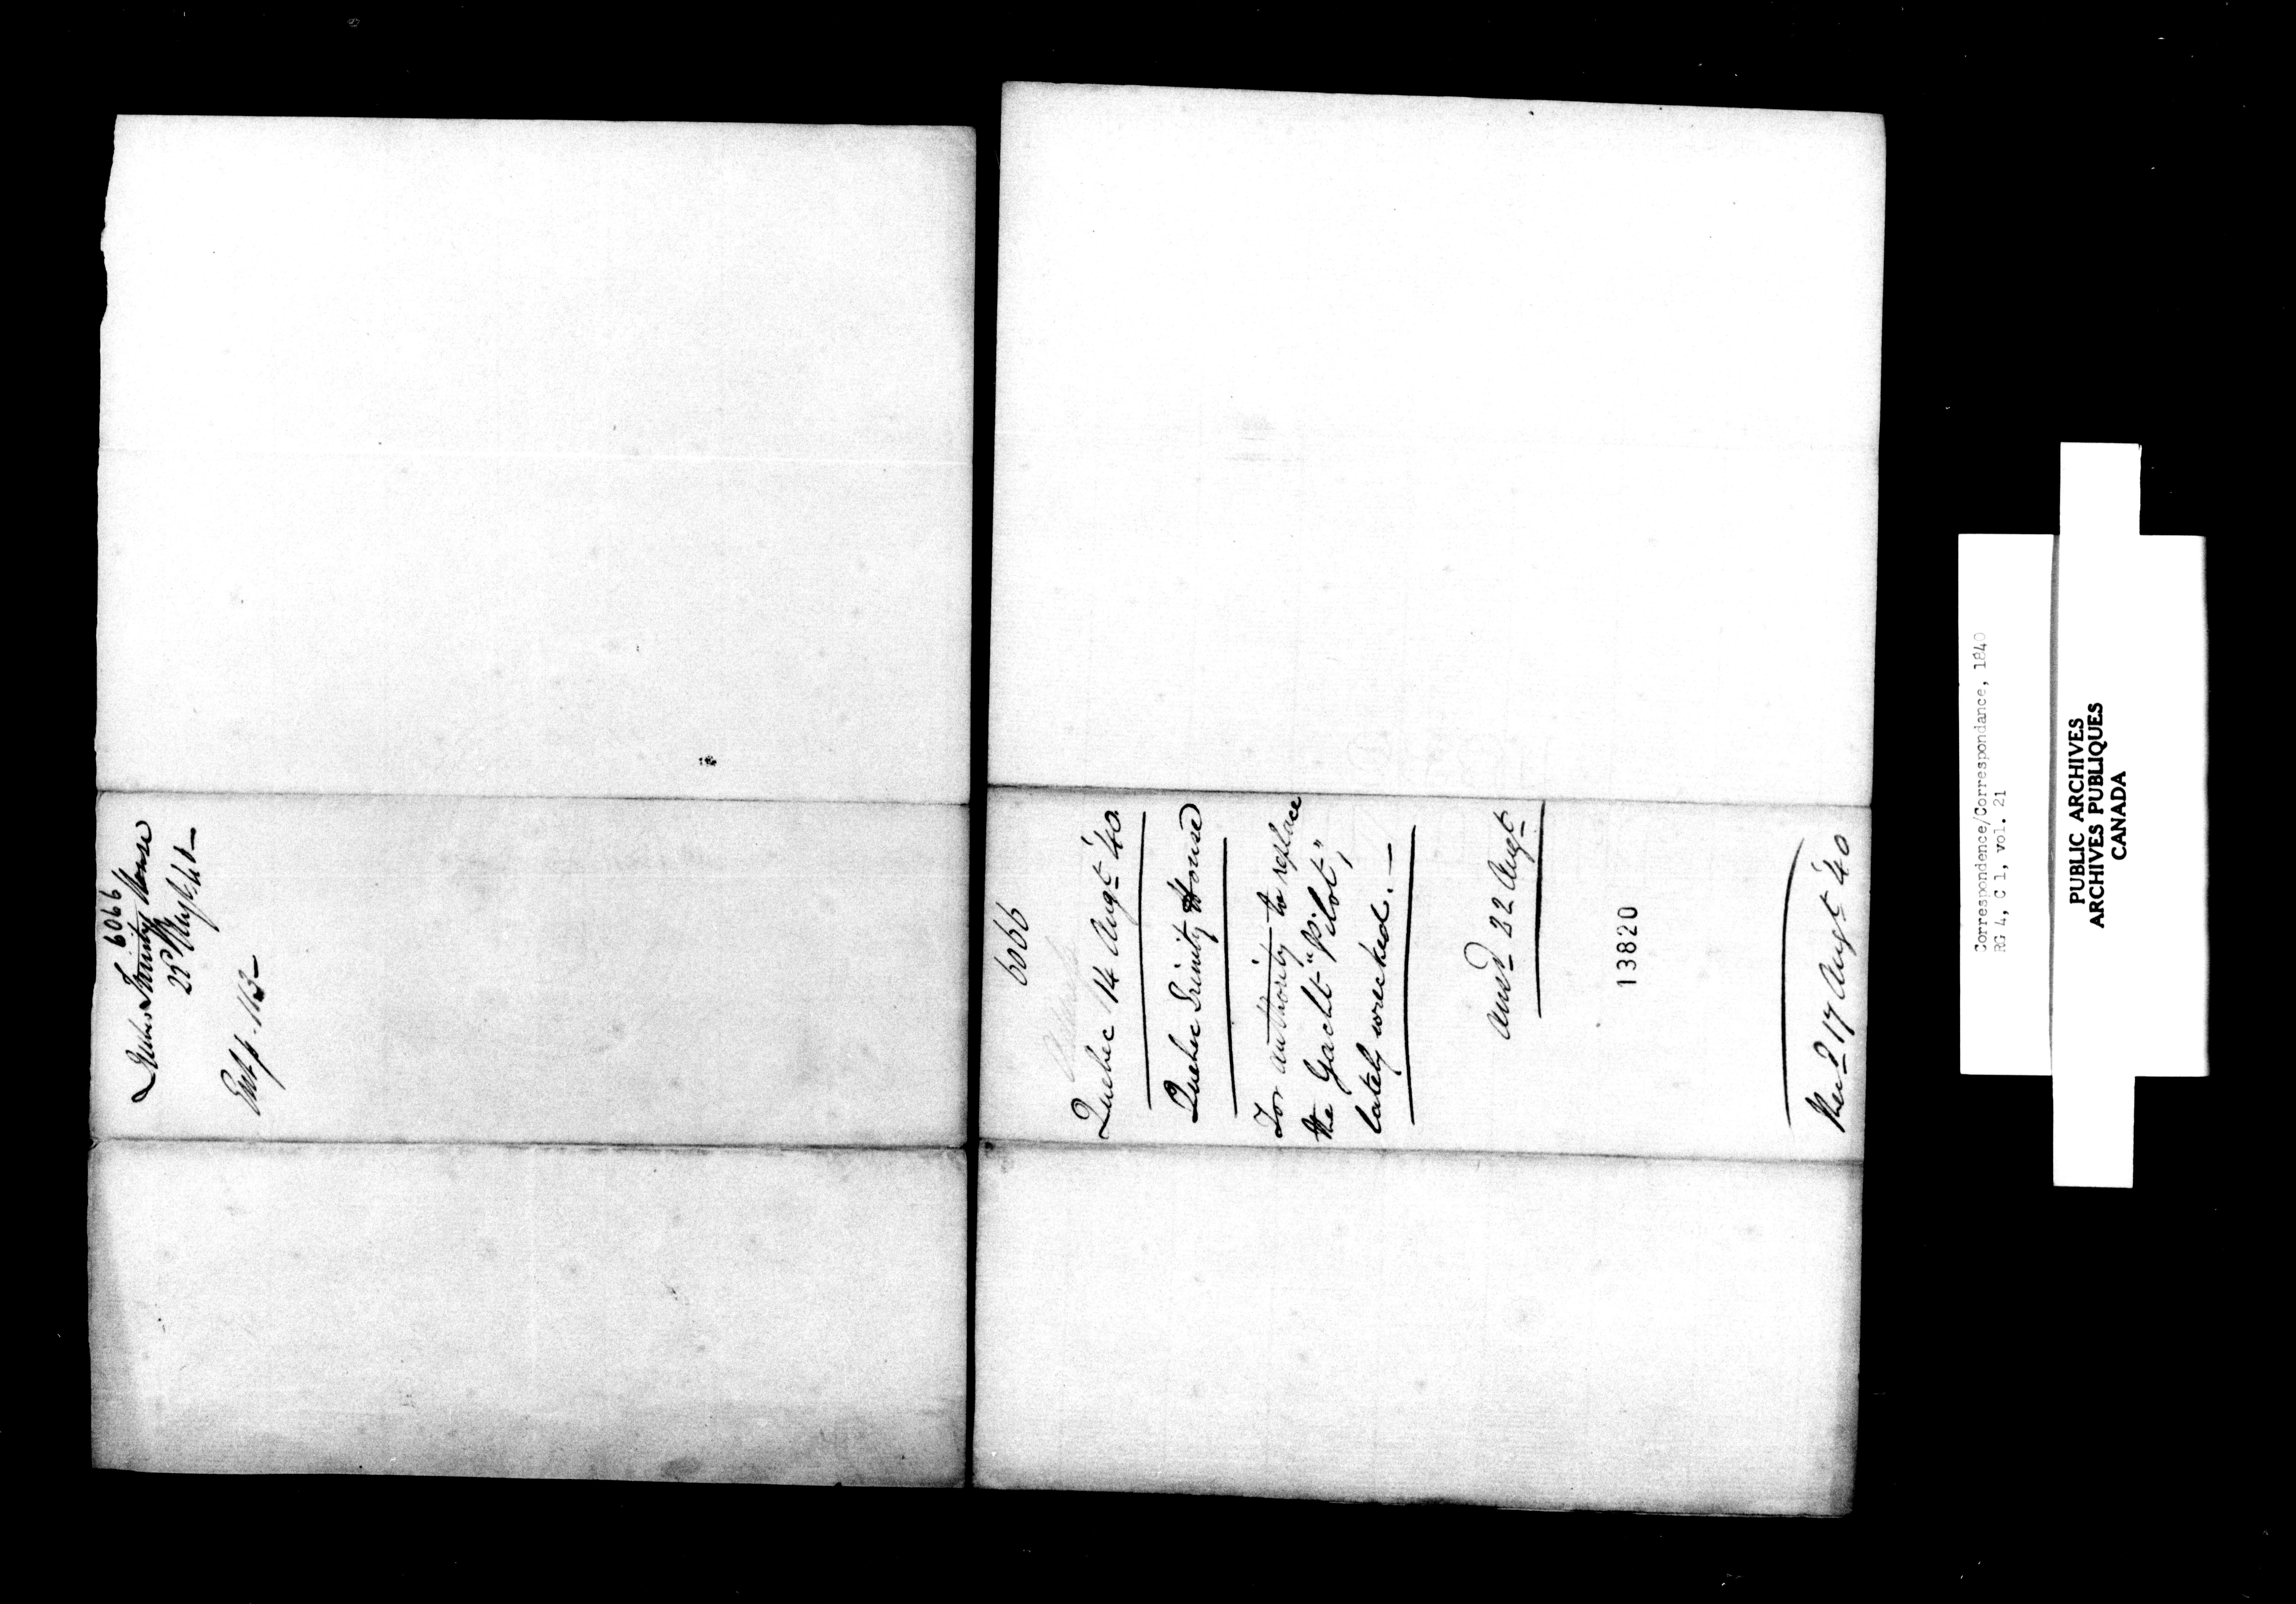 6066
Quebec Trinity House
22d Augst 40—
Ent p. 113—
6066
Quebec 14 Augt '40.
Quebec Trinity House
For authority to replace
the Yacht "Pilot",
lately wrecked.—
Ansd 22 Augt
13820
Recd 17 Augt '40
Correspondence/Correspondance, 1840
RG 4, C 1, vol. 21
PUBLIC ARCHIVES
ARCHIVES PUBLIQUES
CANADA